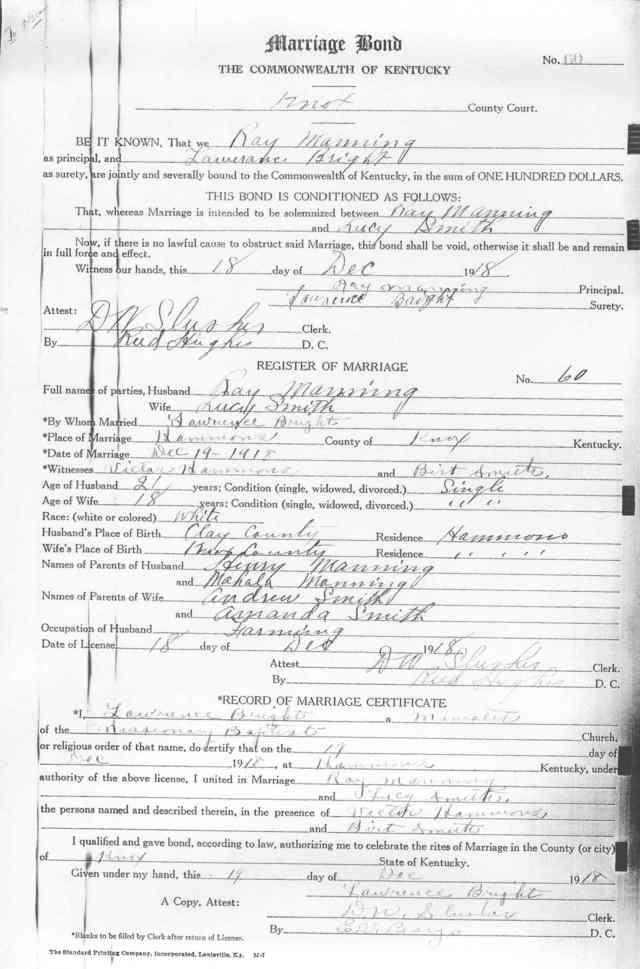 Marriage Bond
No. 60
THE COMMONWEALTH OF KENTUCKY
Knox County Court.
BE IT KNOWN, That we Ray Manning
as principal, and Lawrance Bright
as surety, are jointly and severally bound to the Commonwealth of Kentucky, in the sum of ONE HUNDRED DOLLARS.
THIS BOND IS CONDITIONED AS FOLLOWS:
That, whereas Marriage is intended to be solemnized between Ray Manning
and Lucy Smith
Now, if there is no lawful cause to obstruct said Marriage, this bond shall be void, otherwise it shall be and remain
in full force and effect.
Witness our hands, this 18 day of Dec 1918
Ray Manning Principal.
Lawrence Bright Surety.
Attest:
D W Slusher Clerk.
By Reed Hughes D. C.
REGISTER OF MARRIAGE
No. 60
Full names of parties, Husband Ray Manning
Wife Lucy Smith
*By Whom Married Lawrence Bright
*Place of Marriage Hammons County of Knox Kentucky.
*Date of Marriage Dec 19-1918
*Witnesses Victor Hammons and Birt Smith
Age of Husband 21 years; Condition (single, widowed, divorced.) Single
Age of Wife 18 years; Condition (single, widowed, divorced.) " "
Race: (white or colored) White
Husband's Place of Birth Clay County Residence Hammons
Wife's Place of Birth Knox County Residence " " "
Names of Parents of Husband Henry Manning
and Mahala Manning
Names of Parents of Wife Andrew Smith
and Amanda Smith
Occupation of Husband Farming
Date of License 18 day of Dec 1918
Attest D W Slusher Clerk.
By Reed Hughes D. C.
*RECORD OF MARRIAGE CERTIFICATE
*I, Lawrence Bright a Minister
of the Missionary Baptist Church,
or religious order of that name, do certify that on the 19 day of
Dec 1918, at Hammons Kentucky, under
authority of the above license, I united in Marriage Ray Manning
and Lucy Smith
the persons named and described therein, in the presence of Victor Hammons
and Birt Smith
I qualified and gave bond, according to law, authorizing me to celebrate the rites of Marriage in the County (or city)
of Knox State of Kentucky.
Given under my hand, this 19 day of Dec 1918
Lawrence Bright
A Copy, Attest: D W Slusher Clerk.
By D. C.
*Blanks to be filed by Clerk after return of License.
The Standard Printing Company, Incorporated, Louisville, Ky.